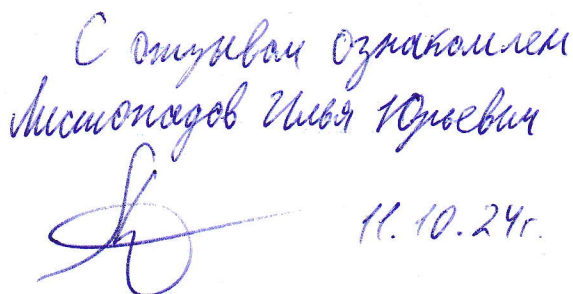 С отзывом ознакомлен
Листопадов Илья Юрьевич
11.10.24г.